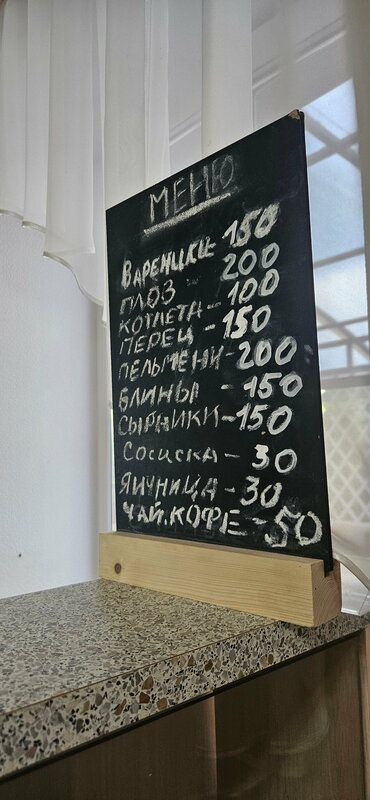 МЕНЮ
ВАРЕНИКИ - 150
ПЛОЗ - 200
КОТЛЕТА - 100
ПЕРЕЦ - 150
ПЕЛЬМЕНИ - 200
БЛИНЫ - 150
СЫРНИКИ - 150
СОСИСКА - 30
ЯИЧНИЦА - 30
ЧАЙ.КОФЕ - 50